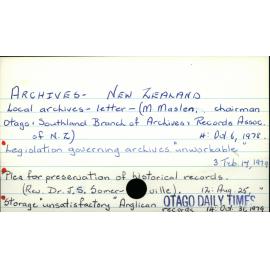 ARCHIVES - NEW ZEALAND
Local archives - letter - (M. Maslen, chairman
Otago & Southland Branch of Archives & Records Assoc.
of N.Z) 4: Oct 6, 1978
Legislation governing archives "unworkable"
3 Feb 17, 1979
Plea for preservation of historical records.
(Rev. Dr. J.S. Somerville). 12: Aug. 25,
Storage "unsatisfactory" Anglican OTAGO DAILY TIMES
records 14: Oct. 31, 1979